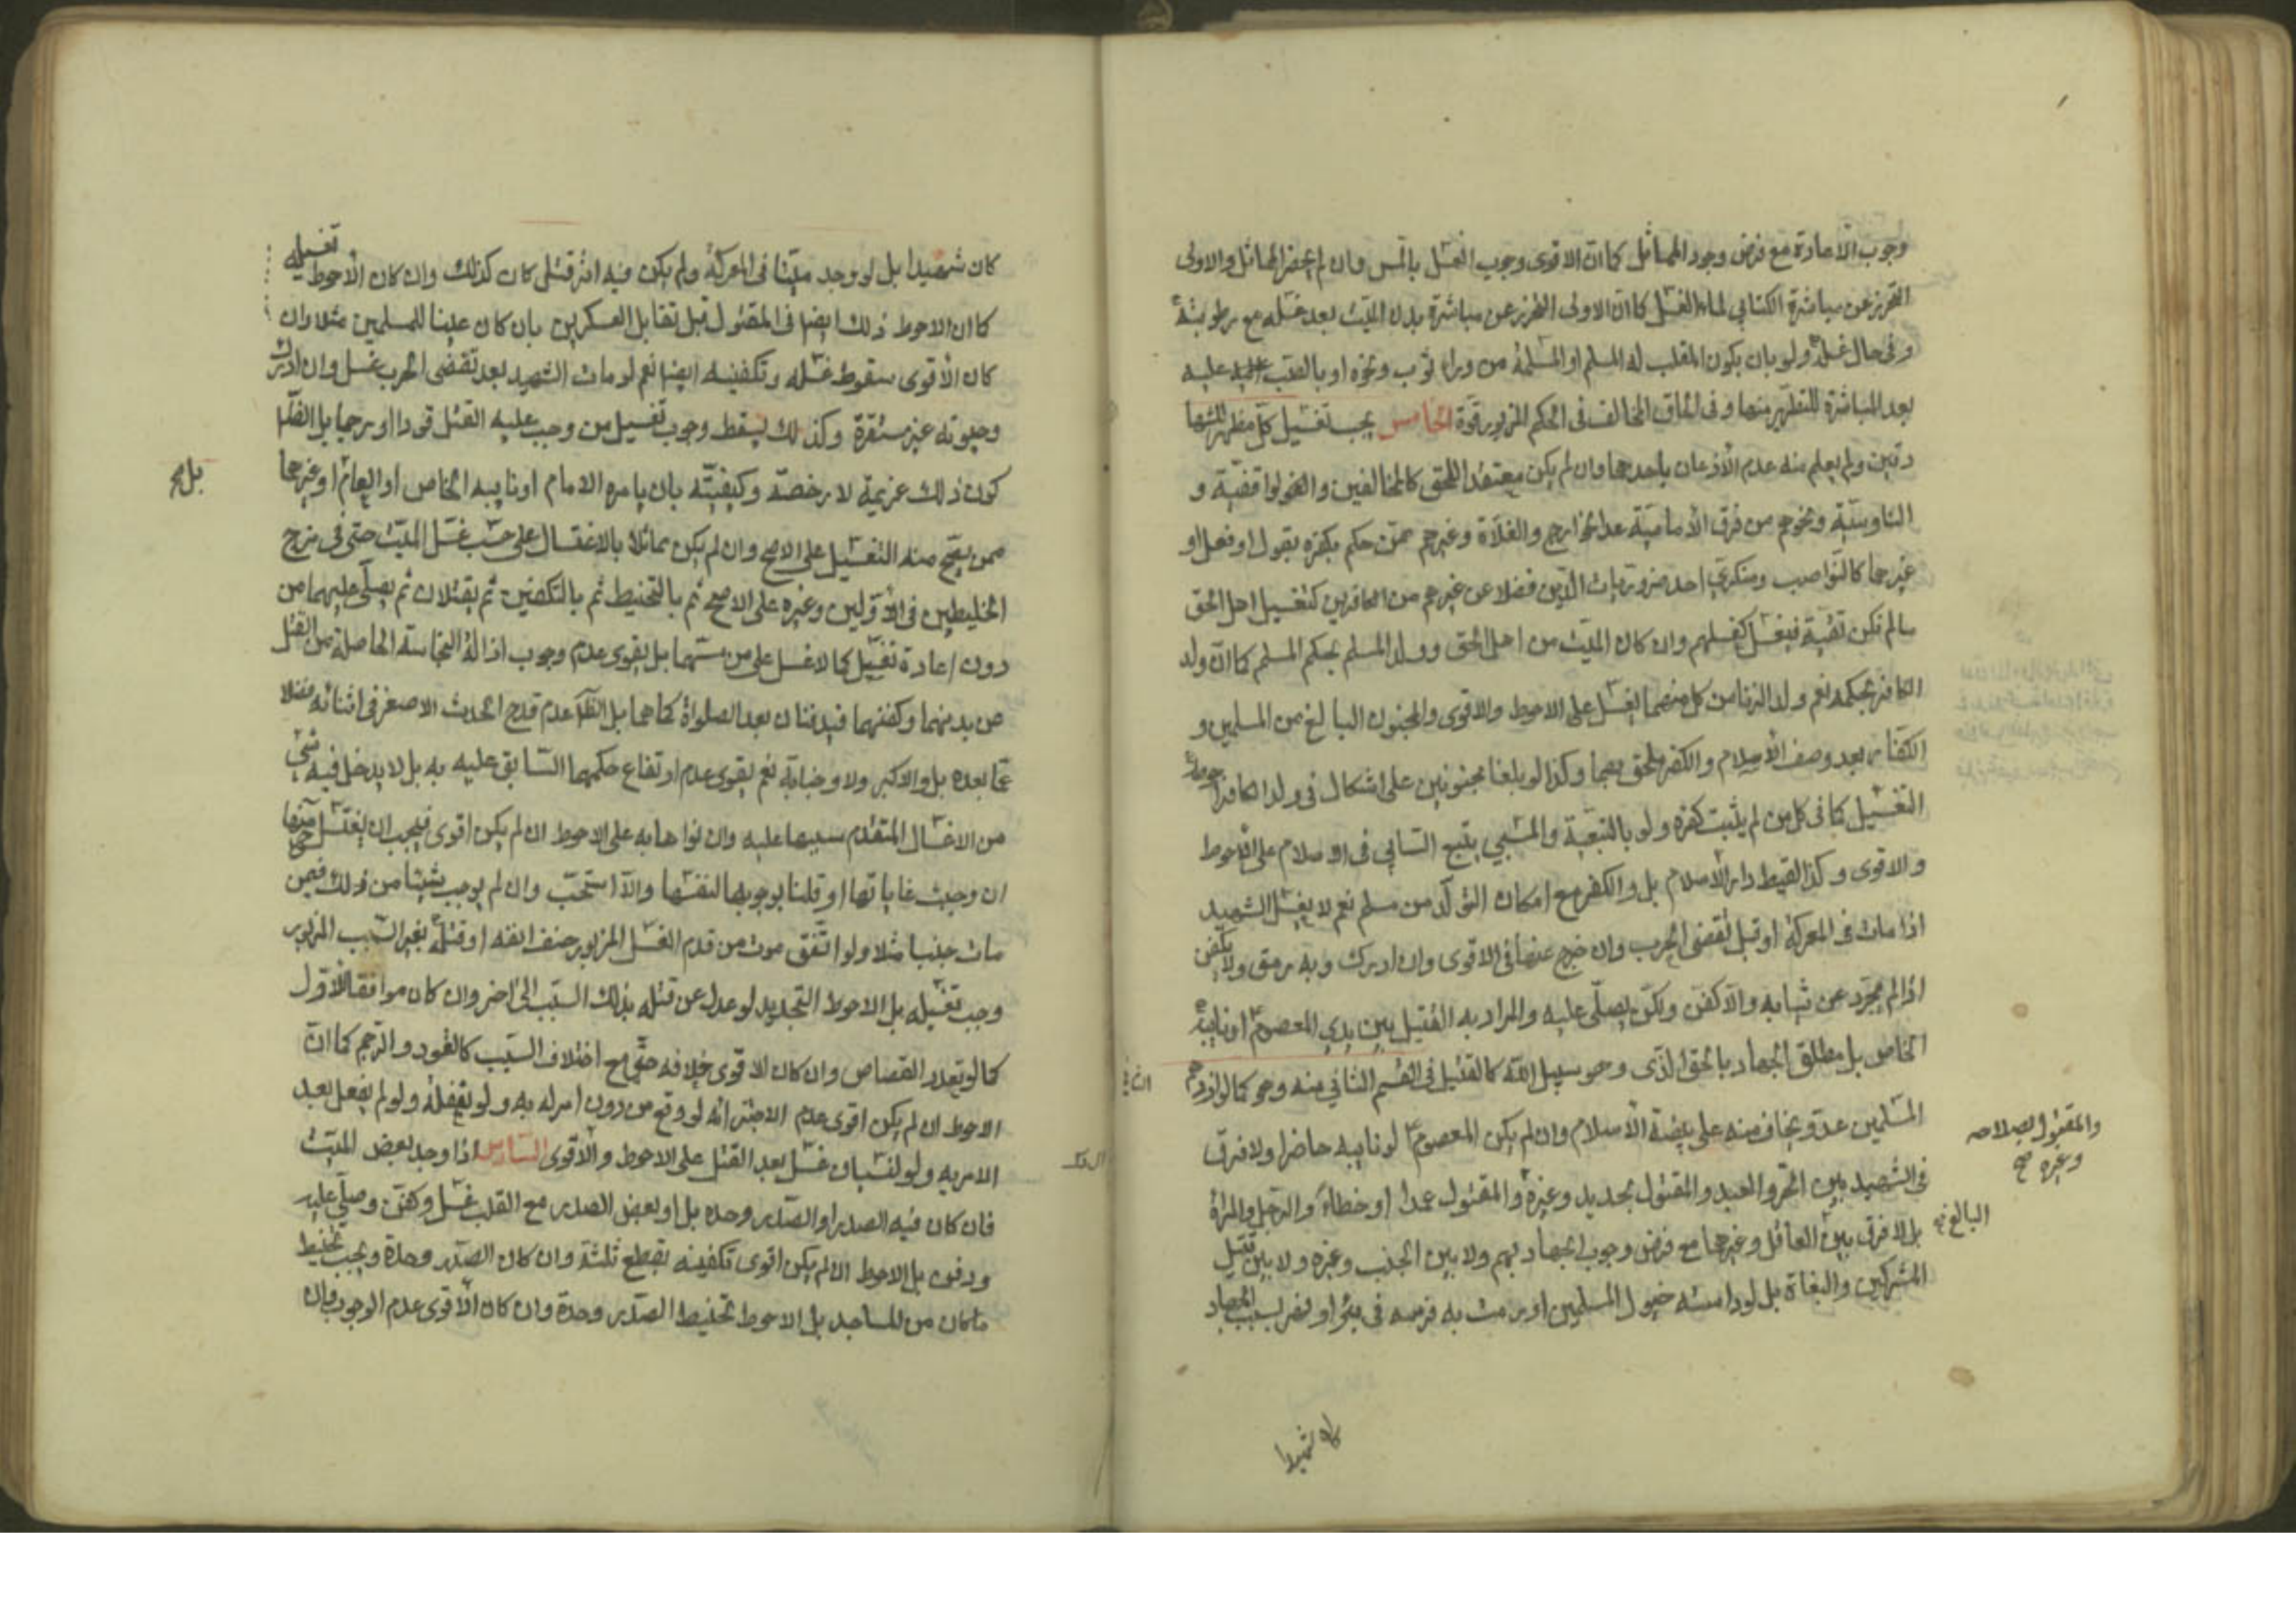 وجوب الاعادة مع فرض وجود المماثل كما ان الاقوى وجوب الغسل بالمس وان لم يحضر المماثل والاولى
التحرز عن مباشرة الكتابي لماء الغسل كما ان الاولى التحرز عن مباشرة بدن الميت بعد غسله مع رطوبته
وفي حال غسله ولو بان يكون المقلب له المسلم او المسلمة من وراء ثوب ونحوه او بالصب عليه
بعد المباشرة للتطهير منها وفي الحاق المخالف في الحكم المزبور قوة الخامس يجب تغسيل كل مظهر للشها
دتين ولم يعلم منه عدم الاذعان باحدهما وان لم يكن معتقدا للحق كالمخالفين والواقفية و
الناوسية ونحوهم من فرق الامامية عدا الخوارج والغلاة وغيرهم ممن حكم بكفره بقول او فعل او
غيرهما كالنواصب ومنكري احد ضروريات الدين فضلا عن غيرهم من الكافرين كتغسيل اهل الحق
ما لم تكن تقية فيغسل كغسلهم وان كان الميت من اهل الحق وولد المسلم بحكم المسلم كما ان ولد
الكافر بحكمه نعم ولد الزنا من كل منهما يغسل على الاحوط والاقوى والمجنون البالغ من المسلمين و
الكفار بعد وصف الاسلام والكفر ملحق بهما وكذا لو بلغا مجنونين على اشكال في ولد الكافر احوطه
التغسيل كما في كل من لم يثبت كفره ولو بالتبعية والمسبي يتبع السابي في الاسلام على الاحوط
والاقوى وكذا لقيط دار الاسلام بل والكفر مع امكان التولد من مسلم نعم لا يغسل الشهيد
اذا مات في المعركة او قبل تقضي الحرب وان خرج عنها في الاقوى وان ادرك وبه رمق ولا يكفن
اذا لم يجرد عن ثيابه والا كفن ولكن يصلى عليه والمراد به القتيل بين يدي المعصوم او نايبه
الخاص بل مطلق الجهاد بالحق الذى وهو سبيل الله كالقتيل في القسم الثاني منه وهو كما لو
المسلمين عدو يخاف منه على بيضة الاسلام وان لم يكن المعصوم او نايبه حاضرا ولا فرق
في الشهيد بين الحر والعبد والمقتول بحديد وغيره والمقتول عمدا او خطاء والرجل والمراة
بل لا فرق بين العاقل وغيرهما مع فرض وجوب الجهاد بهم ولا بين الجنب وغيره ولا بين قتيل
المشركين والبغاة بل لو داسته خيول المسلمين او رمت به فرسه في بئر او بسبب الجهاد
والمقتول بسلاحه
وغيره صح
البالغ
كان شهيدا
كان شهيدا بل لو وجد ميتا في المعركة ولم يكن فيه اثر قتلى كان كذلك وان كان الاحوط تغسيله
كما ان الاحوط ذلك ايضا في المقتول قبل تقابل العسكرين بان كان عينا للمسلمين مثلا وان
كان الاقوى سقوط غسله وتكفينه ايضا نعم لو مات الشهيد بعد تقضى الحرب غسل وان ادرك
وحيوته غير مستقرة وكذلك يسقط وجوب تغسيل من وجب عليه القتل قودا او رجما بل الظا
كون ذلك عزيمة لا رخصة وكيفيته بان يامره الامام او نايبه الخاص او العام او غيرهما
بل
ممن يصح منه التغسيل على الاصح وان لم يكن مماثلا بالاغتسال على حسب غسل الميت حتى في مزج
الخليطين في الاولين وغيره على الاصح ثم بالتحنيط ثم بالتكفين ثم يقتلان ثم يصلى عليهما من
دون اعادة تغسيل كما لا غسل على من مسهما بل يقوى عدم وجوب ازالة النجاسة الحاصلة من القتل
من بدنهما وكفنهما فيدفنان بعد الصلواة كما هما بل الظا عدم قدح الحدث الاصغر في اثنائه فضلا
عما بعده بل والاكبر ولا وجنابة نعم يقوى عدم ارتفاع حكمهما السابق عليه به بل لا يدخل فيه شئ
من الاغسال المتقدم سببها عليه وان نواها به على الاحوط ان لم يكن اقوى فيجب ان يغتسل منها
ان وجبت غاياتها او قلنا بوجوبها لنفسها والا استحب وان لم يوجب شيئا من ذلك فيمن
مات جنبا مثلا ولو اتفق موت من قدم الغسل المزبور حتف انفه او قتله بغير السبب المزبور
وجب تغسيله بل الاحوط التجديد لو عدل عن قتله بذلك السبب الى اخر وان كان موافقا للاول
كما لو تعدد القصاص وان كان الاقوى خلافه حتى مع اختلاف السبب كالقود والرجم كما ان
الاحوط ان لم يكن اقوى عدم الاجتزائه لو وقع من دون امر له به ولو لغفلة ولو لم يفعل بعد
الامر به ولو لنسيان غسل بعد القتل على الاحوط والاقوى السادس اذا وجد بعض الميت
فان كان فيه الصدر او الصدر وحده بل او بعض الصدر مع القلب غسل وكفن وصلى عليه
ودفن بل الاحوط ان لم يكن اقوى تكفينه بقطع ثلثة وان كان الصدر وحده ويجب تحنيط
ما كان من المساجد بل الاحوط تحنيط الصدر وحدة وان كان الاقوى عدم الوجوب فان